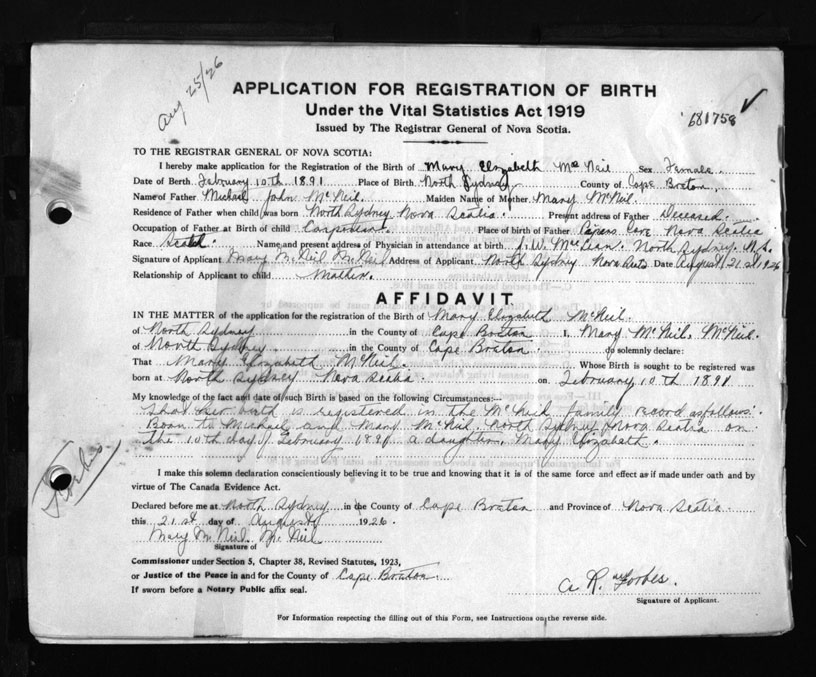 Aug 25/26
APPLICATION FOR REGISTRATION OF BIRTH
Under the Vital Statistics Act 1919
681758
Issued by The Registrar General of Nova Scotia.
TO THE REGISTRAR GENERAL OF NOVA SCOTIA:
I hereby make application for the Registration of the Birth of Mary Elizabeth McNeil Sex Female.
Date of Birth February 10th 1891 Place of Birth North Sydney County of Cape Breton.
Name of Father Michael John McNeil. Maiden Name of Mother Mary McNeil.
Residence of Father when child was born North Sydney Nova Scotia. Present address of Father Deceased.
Occupation of Father at Birth of child Carpenter. Place of birth of Father Cove Nova Scotia
Race Scotch. Name and present address of Physician in attendance at birth J. W. McLean. North Sydney. N.S.
Signature of Applicant Mary McNeil McNeil Address of Applicant North Sydney Nova Date August 21st 1926
Relationship of Applicant to child Mother.
AFFIDAVIT
IN THE MATTER of the application for the registration of the Birth of Mary Elizabeth McNeil.
of North Sydney in the County of Cape Breton I, Mary McNeil. McNeil.
of North Sydney in the County of Cape Breton. do solemnly declare:
That Mary Elizabeth McNeil. Whose Birth is sought to be registered was
born at North Sydney Nova Scotia. on February 10th 1891
My knowledge of the fact and date of such Birth is based on the following Circumstances:—
That her birth is registered in the McNeil family Record as follows:
Born to Michael and Mary McNeil, North Sydney Nova Scotia on
the 10th day of February 1891 a daughter, Mary Elizabeth.
Forbes
I make this solemn declaration conscientiously believing it to be true and knowing that it is of the same force and effect as if made under oath and by
virtue of The Canada Evidence Act.
Declared before me at North Sydney in the County of Cape Breton and Province of Nova Scotia.
this 21st day of August 1926.
Mary McNeil McNeil
Signature of
Commissioner under Section 5, Chapter 38, Revised Statutes, 1923,
or Justice of the Peace in and for the County of Cape Breton.
If sworn before a Notary Public affix seal.
A R. Forbes.
Signature of Applicant.
For Information respecting the filling out of this Form, see Instructions on the reverse side.